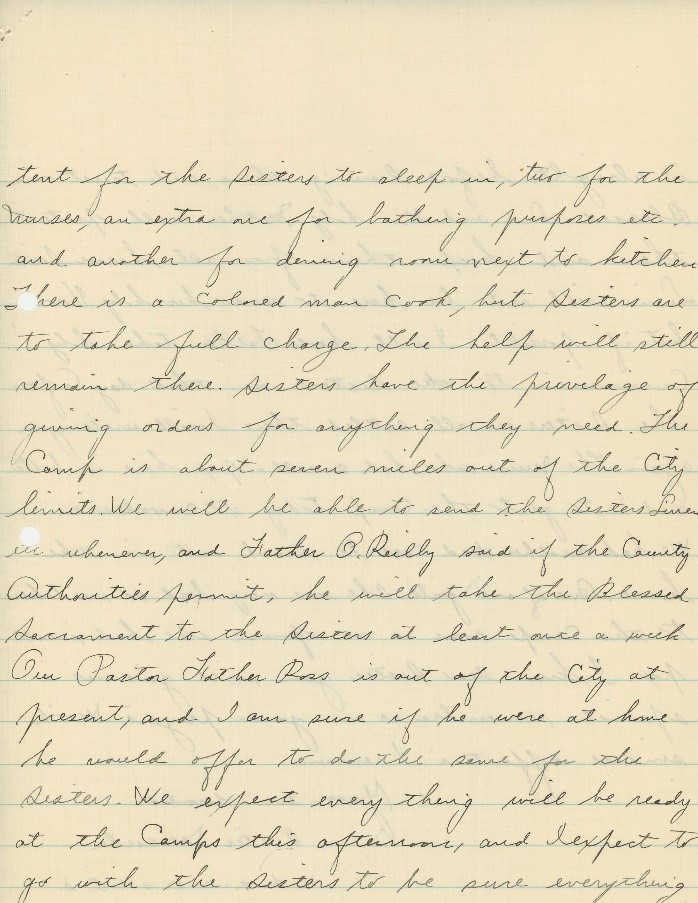 tent for the Sisters to sleep in, two for the
nurses, an extra one for bathing purposes etc.
and another for dining room next to kitchen
There is a colored man cook, but Sisters are
to take full charge. The help will still
remain there. Sisters have the privelage of
giving orders for anything they need. The
Camp is about seven miles out of the City
limits. We will be able to send the Sisters Linen
in whenever, and Father O.Reilly said if the County
Authorities permit, he will take the Blessed
Sacrament to the Sisters at least once a week
Our Pastor Father Ross is out of the City at
present, and I am sure if he were at home
he would offer to do the same for the
Sisters. We expect every thing will be ready
at the Camps this afternoon, and I expect to
go with the Sisters to be sure everything